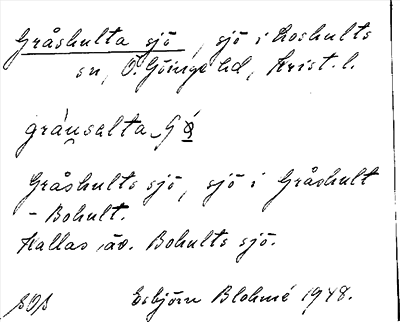 Gråshulta sjö, sjö i Loshults
sn, Ö. Göinge hd, Krist. l.
Gråshults sjö, sjö i Gråshult
- Bohult.
Kallas äv. Bohults sjö.
Esbjörn Blohmé 1948.